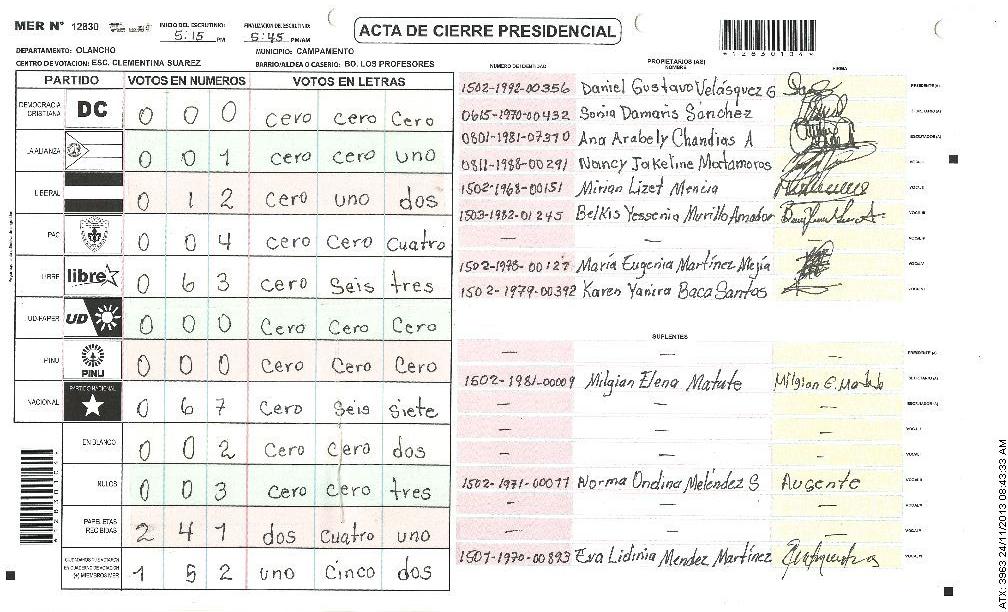 MER N° 12830
INICIO DEL ESCRUTINIO: 5:15 PM
FINALIZACION DEL ESCRUTINIO: 5:45 PM/AM
ACTA DE CIERRE PRESIDENCIAL
DEPARTAMENTO: OLANCHO
MUNICIPIO: CAMPAMENTO
CENTRO DE VOTACION: ESC. CLEMENTINA SUAREZ
BARRIO/ALDEA O CASERIO: BO. LOS PROFESORES
PARTIDO VOTOS EN NUMEROS VOTOS EN LETRAS
DEMOCRACIA CRISTIANA DC 0 0 0 cero cero Cero
LA ALIANZA 0 0 1 cero cero uno
LIBERAL 0 1 2 cero uno dos
PAC 0 0 4 cero Cero cuatro
LIBRE libre 0 6 3 cero Seis tres
UD-FAPER UD 0 0 0 Cero Cero Cero
PINU PINU 0 0 0 Cero Cero Cero
NACIONAL PARTIDO NACIONAL 0 6 7 Cero Seis siete
EN BLANCO 0 0 2 Cero Cero dos
NULOS 0 0 3 cero cero tres
PAPELETAS RECIBIDAS 2 4 1 dos cuatro uno
(+) MIEMBROS MER 1 5 2 uno Cinco dos
NUMERO DE IDENTIDAD PROPIETARIOS (AS) NOMBRE FIRMA
1502-1992-00356 Daniel Gustavo Velásquez G PRESIDENTE (A)
0615-1970-00432 Sonia Damaris Sánchez SECRETARIO (A)
0801-1981-07370 Ana Arabely Chandias A ESCRUTADOR (A)
0811-1988-00291 Nancy Jakeline Matamoros VOCAL I
1502-1968-00151 Mirian Lizet Mencia VOCAL II
1503-1982-01245 Belkis Yessenia Murillo Amador VOCAL III
— — VOCAL IV
1502-1978-00127 María Eugenia Martínez Mejía VOCAL V
1502-1979-00392 Karen Yanira Baca Santos VOCAL VI
SUPLENTES
— — — PRESIDENTE (A)
1502-1981-00009 Milgian Elena Matute Milgian E. Matute SECRETARIO (A)
— — — ESCRUTADOR (A)
— — — VOCAL I
— — — VOCAL II
1502-1971-00077 Norma Ondina Meléndez S Augente VOCAL III
— — — VOCAL IV
— — — VOCAL V
1507-1970-00893 Eva Lidinia Mendez Martínez VOCAL VI
ATX: 3963 24/11/2013 08:43:33 AM